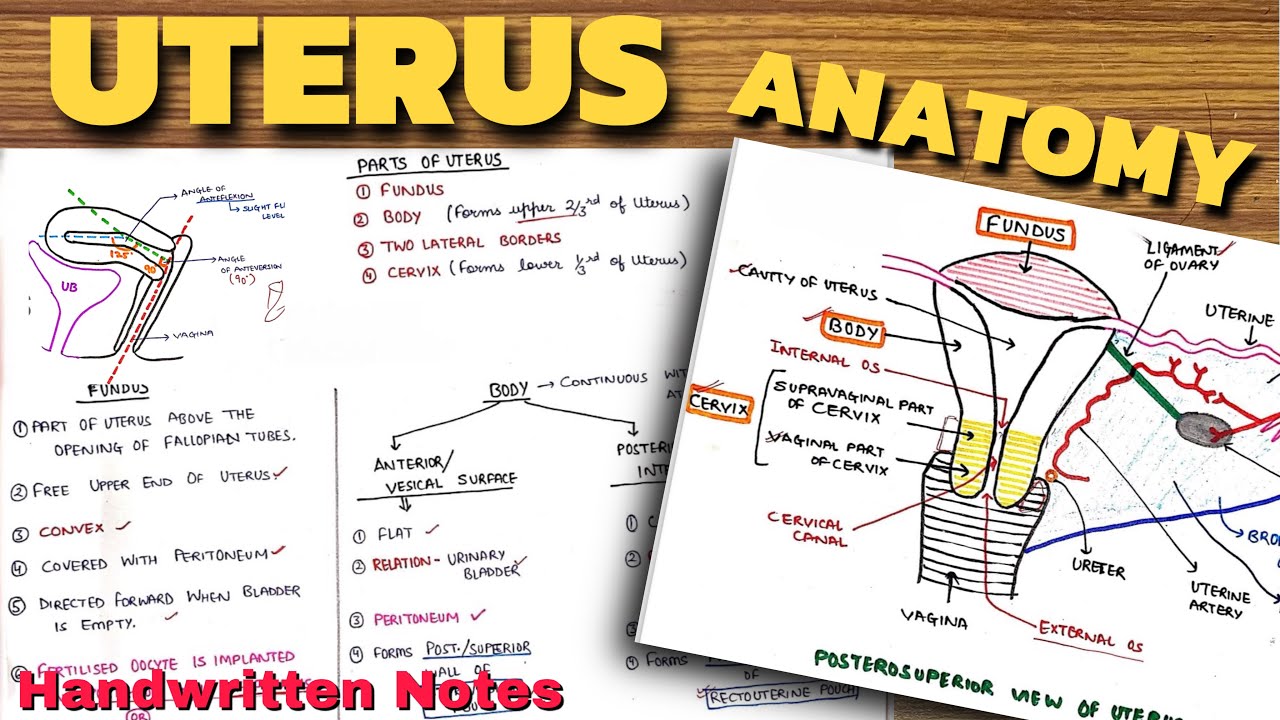 UTERUS ANATOMY
PARTS OF UTERUS
① FUNDUS
② BODY (Forms upper 2/3rd of Uterus)
③ TWO LATERAL BORDERS
④ CERVIX (Forms lower 1/3rd of Uterus)
ANGLE OF
ANTEFLEXION
SLIGHT
LEVEL
125°
90
ANGLE
OF ANTEVERSION
(90°)
UB
VAGINA
FUNDUS
① PART OF UTERUS ABOVE THE
OPENING OF FALLOPIAN TUBES.
② FREE UPPER END OF UTERUS
③ CONVEX
④ COVERED WITH PERITONEUM
⑤ DIRECTED FORWARD WHEN BLADDER
IS EMPTY.
FERTILISED OOCYTE IS IMPLANTED
OR
BODY → CONTINUOUS
ANTERIOR/
VESICAL SURFACE
① FLAT
② RELATION - URINARY
BLADDER
③ PERITONEUM
④ FORMS POST./SUPERIOR
OF
①
②
④ FORMS
OF
RECTOUTERINE POUCH
FUNDUS
LIGAMENT
OF OVARY
CAVITY OF UTERUS
UTERINE
BODY
INTERNAL OS
CERVIX
SUPRAVAGINAL PART
OF CERVIX
VAGINAL PART
OF CERVIX
CERVICAL
CANAL
URETER
UTERINE
ARTERY
VAGINA
EXTERNAL OS
POSTEROSUPERIOR VIEW OF
Handwritten Notes